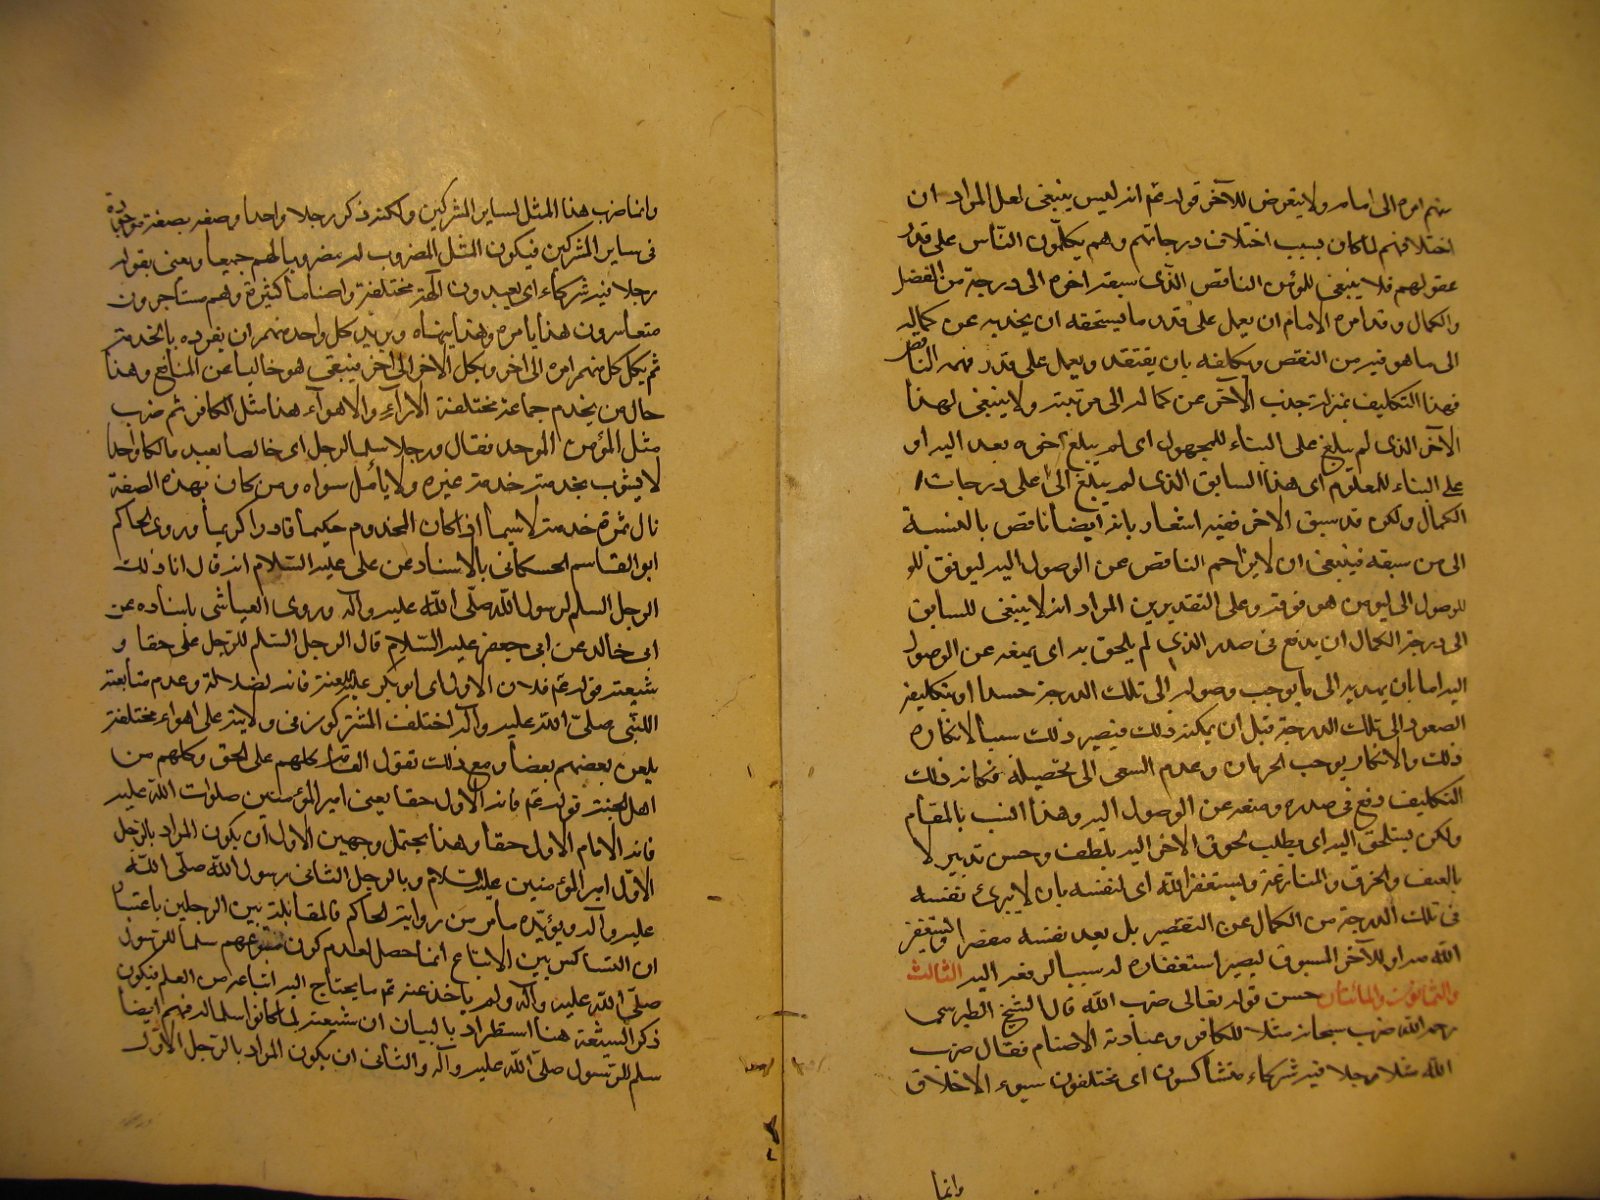 منهم امره الى امامه ولا يتعرض للآخر قوله عم انه ليس ينبغى لعل المراد ان
اختلافهم لما كان بسبب اختلاف درجاتهم وهم يكلّمون النّاس على قدر
عقولهم فلا ينبغى للمؤمن الناقص الذى سبقه اخوه الى درجة من الفضل
والكمال وقد امره الامام ان يعمل على قدر ما يستحقه ان يجذبه عن كماله
الى ما هو فيه من النقص ويكلفه بان يعتقد ويعمل على قدر فهمه الناقص
فهذا التكليف بمنزلة جذب الآخر عن كماله الى مرتبته ولا ينبغى لهذا
الآخر الذى لم يبلغ على البناء للمجهول اى لم يبلغ اخوه بعد اليه او
على البناء للمعلوم اى هذا السابق الذى لم يبلغ الى اعلى درجات
الكمال ولكن قد سبق الاخر ففيه اشعار بانه ايضا ناقص بالنسبة
الى من سبقه فينبغى ان لا يزاحم الناقص عن الوصول اليه ليوفق للو
للوصول الى من هو فوقه وعلى التقديرين المراد انه لا ينبغى للسابق
الى درجة الكمال ان يدفع فى صدر الذى لم يلحق به اى يمنعه عن الوصول
اليه اما بان يهديه الى ما يوجب وصوله الى تلك الدرجة حسدا او بتكليفه
الصعود الى تلك الدرجة قبل ان يمكنه ذلك فيصير ذلك سببا لانكاره
ذلك والانكار يوجب الحرمان وعدم السعى الى تحصيله فكانه ذلك
التكليف دفع فى صدره ومنعه عن الوصول اليه وهذا انسب بالمقام
ولكن يستلحق اليه اى يطلب لحوق الاخر اليه بلطف وحسن تدبير لا
بالعنف والخرق والمنازعة ويستغفر الله اى لنفسه بان لا يبرئ نفسه
فى تلك الدرجة من الكمال عن التقصير بل يعد نفسه مقصرا او يستغفر
الله مداو للآخر المسبوق ليصير استغفاره له سببا لرفعه اليه الثالث
والثمانون والمائتان حسن قوله تعالى ضرب الله قال الشيخ الطبرسى
رحمه الله ضرب سبحانه مثلا للكافر وعبادته الاصنام فقال ضرب
الله مثلا رجلا فيه شركاء متشاكسون اى مختلفون سيوء الاخلاق
وانما
وانما ضرب هذا المثل لساير المشركين ولكنه ذكر رجلا واحدا وصفه بصفة موجودة
فى ساير المشركين فيكون المثل المضروب له مضروبا لهم جميعا ويعنى بقوله
رجلا فيه شركاء اى يعبدون آلهة مختلفة واصناما كثيرة وهم متشاجرون
متعاسرون هذا يامره وهذا ينهاه ويريد كل واحد منهم ان يفرده بالخدمة
ثم يكل كل منهم امره الى اخر ويكل الاخر الى آخر فيبقى هو خاليا عن المنافع وهذا
حال من يخدم جماعة مختلفة الآراء والاهواء هذا مثل الكافر ثم ضرب
مثل المؤمن الموحد فقال ورجلا سلما لرجل اى خالصا يعبد مالكا واحدا
لا يشوب بخدمته خدمة غيره ولا يأمل سواه ومن كان بهذه الصفة
نال ثمرة خدمته لا سيما اذا كان المخدوم حكيما قادرا كريما وروى الحاكم
ابو القاسم الحسكانى بالاسناد عن على عليه السّلام انه قال انا ذلك
الرجل السلم لرسول الله صلّى الله عليه وآله وروى العياشى باسناده عن
ابى خالد عن ابى جعفر عليه السّلام قال الرجل السّلم للرّجل على حقا و
شيعته قوله عم فلان الاول اى ابو بكر عليه اللعنة فانه لضلالة وعدم متابعته
النّبى صلّى الله عليه وآله اختلف المشتركون فى ولايته على اهواء مختلفة
يلعن بعضهم بعضا ومع ذلك تقول العامّة كلهم على الحق وكلهم من
اهل الجنة قوله عم فانه الاول حقا يعنى امير المؤمنين صلوات الله عليه
فانه الامام الاول حقا وهذا يحتمل وجهين الاول ان يكون المراد بالرّجل
الاوّل امير المؤمنين عليه السّلام وبالرجل الثانى رسول الله صلّى الله
عليه وآله ويؤيّده ما مر من رواية الحاكم فالمقابلة بين الرجلين باعتبار
ان التشاكس بين الاتباع انما حصل لعدم كون متبوعهم سلما للرّسول
صلّى الله عليه وآله ولم ياخذ عنه عم ما يحتاج اليه اتباعه من العلم فيكون
ذكر الشيعة هنا استطراد بالبيان ان شيعته لما كانوا سلما له فهم ايضا
سلم للرّسول صلّى الله عليه وآله والثانى ان يكون المراد بالرّجل الاوّل